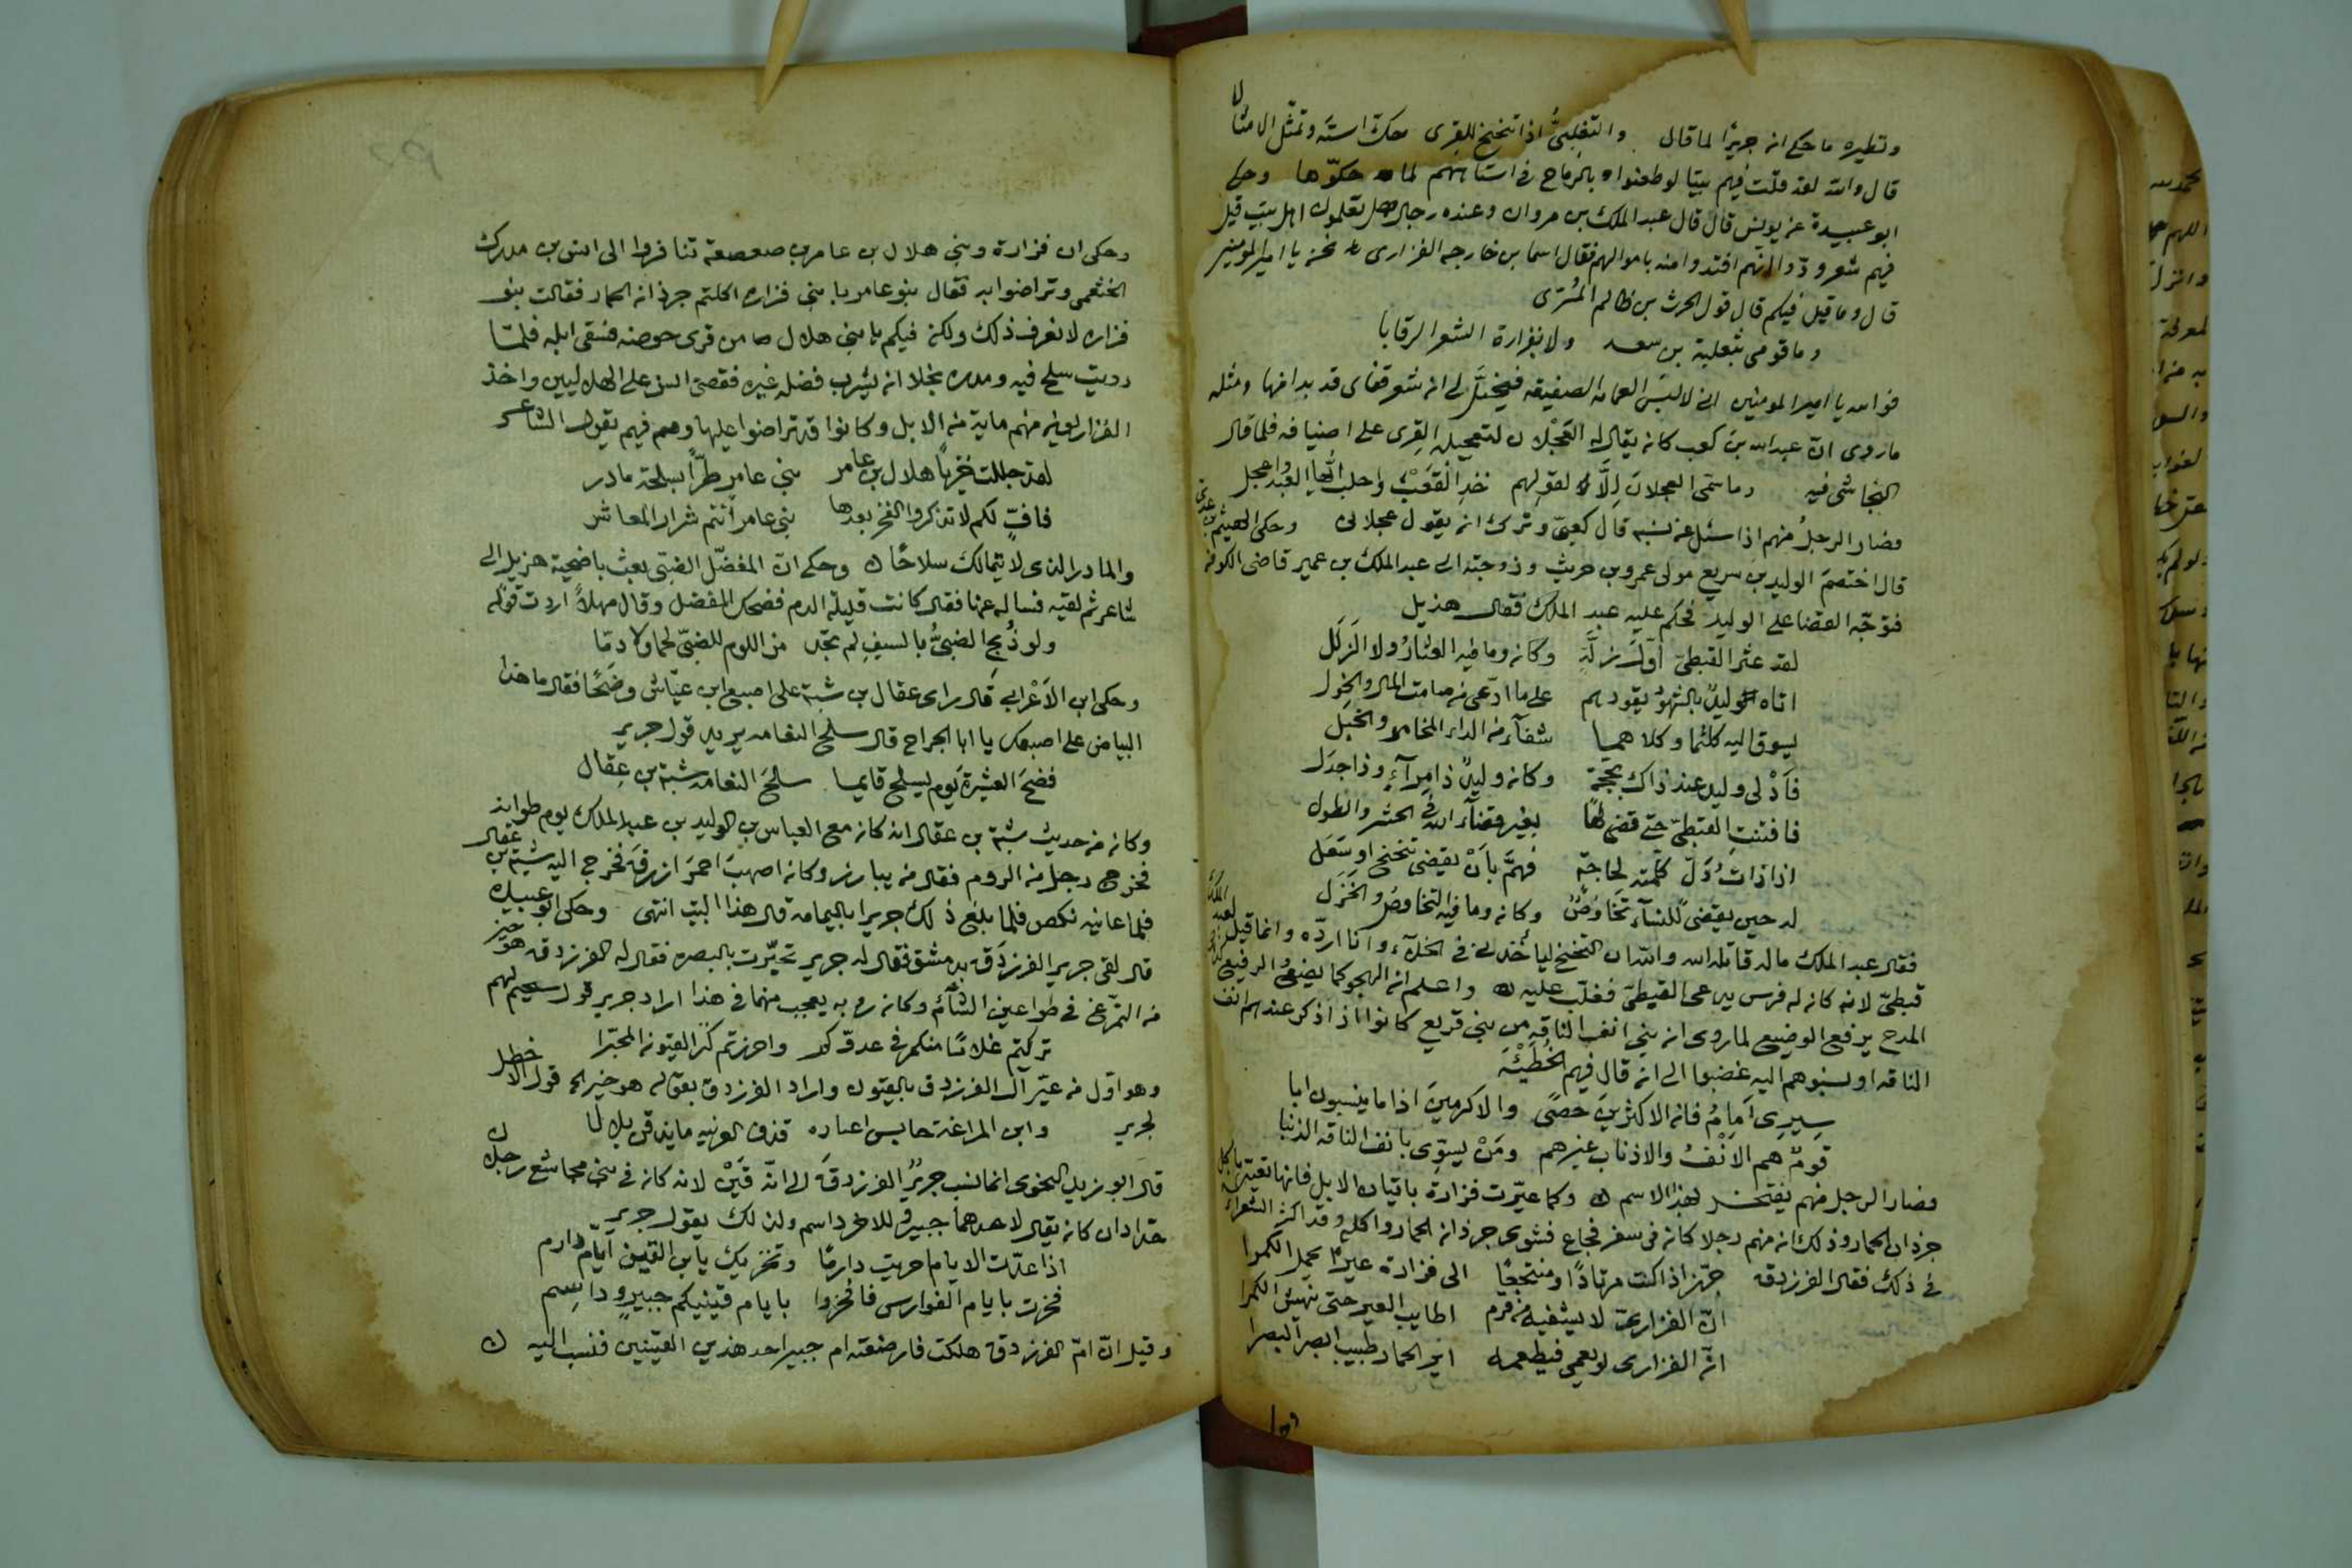 ونظيره ما حكى ان جريرًا لما قال والتغلبيُّ اذا تنحنح للقرى حك استه وتمثل الامثالا
قال والله لقد قلت فيهم بيتا لو طعنوا بالرماح في استاههم لما حكّوها وحكى
ابو عبيدة عن يونس قال قال عبد الملك بن مروان وعنده رجال هل تعلمون اهل بيت قيل
فيهم شعر ودّوا انهم افتدوا منه باموالهم فقال اسما بن خارجه الفزارى نحن يا امير المومنين
قال وما قيل فيكم قال قول الحرث بن ظالم المُرّى
وما قومى بثعلبة بن سعد ولا بفزارة الشعر الرقابا
فوالله يا امير المومنين انى لالبس العمامه الصفيقه فيخيَّل لى ان شعر قفاى قد بدا منها ومثله
ما روى انّ عبد الله بن كعب كان يقال له العَجْلان لتعجيله القِرى على اضيافه فلما قال
النجاشى فيه وما سمّى العجلانَ اِلَّا لقولهم خذ القَعْبَ واحلب ايها العبد واعجل
فصار الرجلُ منهم اذا سئل عن نسبه قال كعبىّ وترك ان يقول عجلانى وحكى الهيثم بن عدى
قال اختصمَ الوليد بن سريع مولى عمرو بن حريث وزوجته الى عبد الملك بن عمير قاضى الكوفه
فتوجّه القضا على الوليد فحكم عليه عبد الملك فقال هذيل
لقد عثر القبطىّ اَوّلَ زلَّةٍ وكان وما فيه العثارُ ولا الزَلَل
اتاه الوليدُ بالشهود يقودهم على ما ادّعى من صامت المال والخول
يسوق اليه كلثما وكلاهما شفآء من الداء المخامر والخَبَل
فاَدْلى وليد عند ذاك بحجّةٍ وكان وليدٌ ذا مِرآءٍ وذا جدَل
فافتنتِ القبطىّ حتى قضى لها بغير قضآء الله فى الحشر والطول
اذا ذاتُ دَلٍّ كلّمته لحاجةٍ فهمَّ باَنْ يقضى تنحنح او سَعَل
له حين يقضى للنسآء تخاوُصٌ وكان وما فيه التخاوصُ والخَزَل
فقال عبد الملك ماله قاتله الله والله ان التنحنح ليأخذنى فى الخلآء وانا اردّه وانما قيل لعبد الملك
قبطىّ لانه كان له فرس يدعى القبطىّ فغلب عليه واعلم ان الهجو كما يضع الرفيع فان
المدح يرفع الوضيع لما روى ان بنى انف الناقه من بنى قريع كانوا اذا ذكر عندهم انف
الناقه او نسبوهم اليه غضبوا الى ان قال فيهم الحُطَيْئَه
سِيرى اَمَامُ فان الاكثرينَ حَصًى والاكرمينَ اذا ما ينسبون ابا
قومٌ هم الاَنْفُ والاذناب غيرهم ومَنْ يسوّى بانف الناقه الذنبا
فصار الرجل منهم يفتخر بهذا الاسم وكما عيّرت فزارة باتيان الابل فانها تعيّر باكل
جرذان الحمار وذلك ان منهم رجلا كان فى سفر فجاع فشوى جرذان الحمار واكله وقد اكثر الشعراء
فى ذلك فقال الفرزدق جهّز اذا كنت مرتادًا ومنتجعًا الى فزارة عيرًا يحمل الكمرا
انّ الفزارىّ لا يشفيه من قرم اطايب العير حتى ينهش الكمرا
انّ الفزارى لو يعمى فيطعمه اير الحمار طبيب ابصر البصرا
وحكى
وحكى ان فزارة وبنى هلال بن عامر بن صعصعة تنافروا الى انس بن مدرك
الخثعمى وتراضوا به فقال بنو عامر يا بنى فزاره اكلتم جرذان الحمار فقالت بنو
فزاره لا نعرف ذلك ولكن فيكم يا بنى هلال من قرى حوضه فسقى ابله فلمّا
رويت سلح فيه ومدره بخلا ان يشرب فضله غيره فقضى انس على الهلاليين واخذ
الفزاريون منهم ماية من الابل وكانوا قد تراضوا عليها وهم فيهم يقول الشاعر
لقد جللت خزيًا هلال بن عامر بنى عامرٍ طرًّا بسلحة مادر
فافٍّ لكم لا تذكروا الفخر بعدها بنى عامر انتم شرار المعاشر
والمادر الذى لا يتمالك سلاحًا وحكى انّ المفضّل الضبّى بعث باضحية هزيل الى
شاعر ثم لقيه فساله عنها فقال كانت قليلة الدم فضحك المفضل وقال مهلاً اردت قوله
ولو ذُبح الضبىُّ بالسيفِ لم تجد من اللوم للضبّى لحما ولا دمّا
وحكى ابن الاَعْرابى قال راى عقال بن شبة على اصبع ابن عيّاش وضَحًا فقال ما هذا
البياض على اصبعك يا ابا الجراح قال سلح النعامه يريد قول جرير
فضحَ العشيرةَ يوم يسلح قايما سلحَ النعامه شبة بن عِقال
وكان من حديث شبة بن عقال انه كان مع العباس بن الوليد بن عبد الملك يوم طوانه
فخرج رجل من الروم فقال من يبارز وكان اصهبَ احمرَ ازرقَ فخرج اليه شبة بن عقال
فلما عاينه نكص فلما بلغ ذلك جريرا باليمامه قال هذا البيت انتهى وحكى ابو عبيده
قال لقى جرير الفرزدق بدمشق فقال له جرير تحيّرت بالبصره فقال له الفرزدق هو خير
من التمرّغ فى طواعين الشآم وكان به يعجب منهما فى هذا اراد جرير قول سحيم لهم
تركتم غلامًا منكم فى عدوّكم واحرزتم كرّ القيون المحبّرا
وهو اوّل من عيّر آل الفرزدق بالقيون واراد الفرزدق بقوله هو خير لك قول الاخطل
لجرير وابن المراغة حابس اعياره قذف الغريبه ما يذقن بلالا
قال ابو زيد النحوى انما نسب جريرٌ الفرزدقَ الى انّه قَيْن لانه كان فى بنى مجاشع رجلان
حدادان كان يقال لاحدهما جبير وللاخر داسم ولذلك يقول جرير
اذا عدّت الايام اخزيت دارمًا وتخزيك يا بن القين ايام دارم
فخرت بايام الفوارس فافخروا بايام قينيكم جبيرٍ وداسِم
وقيل انّ امّ الفرزدق هلكت فارضعته ام جبير احد هذين القينين فنسب اليه